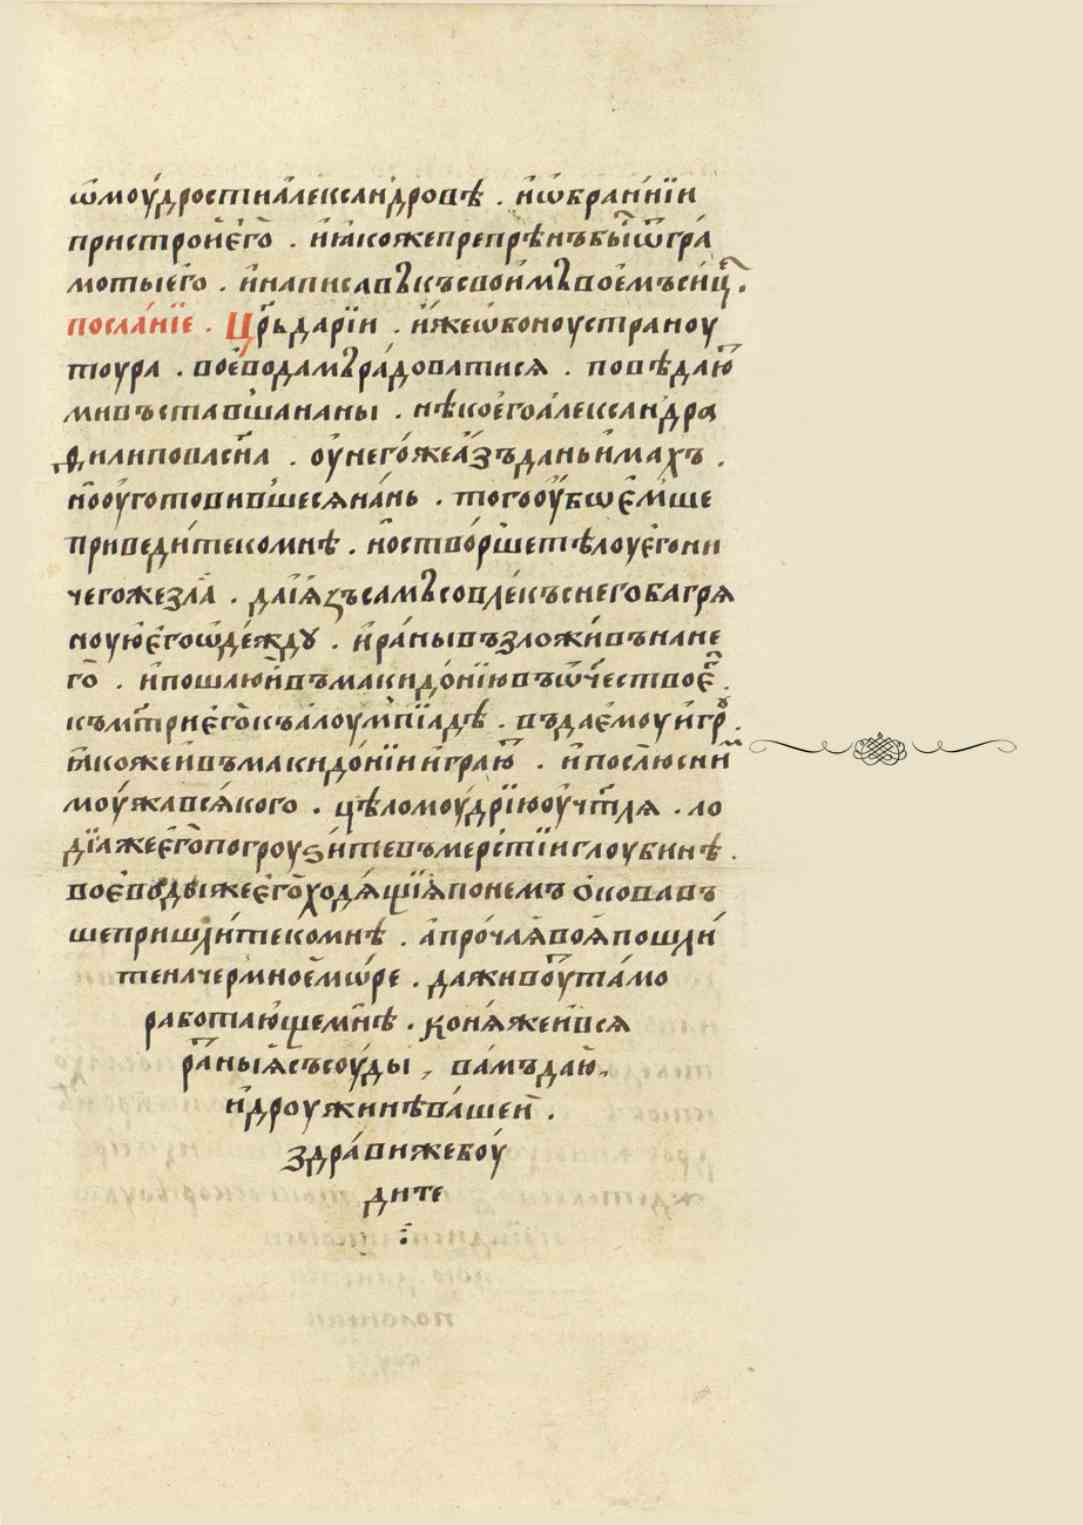 ѿ моу́дрости а҆леѯандровѣ . и҆ ѡ҆ бранні́и
пристрои є҆го̀ . и҆ ꙗкоже препрѣнъ бы́ ѿ гра́
моты его . и҆ написавъ къ свои́мъ вое́мъ си́це.
посла́нїе . Цр҃ь да́рїи . и҆же ѡ҆боноу страноу
тоура . вое́водамъ ра́доватися . повѣдаю́т
ми въставша на ны . нѣкоего а҆леѯандра
филипова сн҃а . оу҆ него́же а҆зъ дань имахъ .
но оу҆готовившеся на́нь . того оу҆бѡ є҆мше
приведи́те ко мнѣ . и҆ ство́рше тѣлоу є҆го ни
чего же зла̀ . да и҆ ꙗзъ самъ совле́къ с него багря
ноую є҆го ѡде́ждꙋ . и҆ ра́ны възложи́въ на не
го̀ . и҆ пошлю и҆ въ макидо́нїю въ ѿч҃ество є҆г
къ мт҃ри є҆го̀ къ а҆лоумпїа́дѣ . въда є҆моу игрꙋ .
ꙗ҆коже и҆ въ макидо́нїи и҆граю́т . и҆ посл̀ю с ни́м
моу́жа вся́кого . цѣломоу́дрїю оу҆чт҃ля . ло
дїа же є҆го̀ погроуѕи́те въ мерстїи глоубинѣ .
вое́воды же є҆го̀ ходя́щїя по немъ о҆ковавъ
ше пришли́те ко мнѣ . а҆ про́чаꙗ воꙗ пошли́
те на чермное мо́ре . да живоу́т та́мо
работающе мнѣ . коня́ же и҆ вся
ра́ныꙗ съсоу́ды , ва́мъ даю̀ ,
и҆ дроужинѣ ва́шеи .
здра́ви же боу́
дите